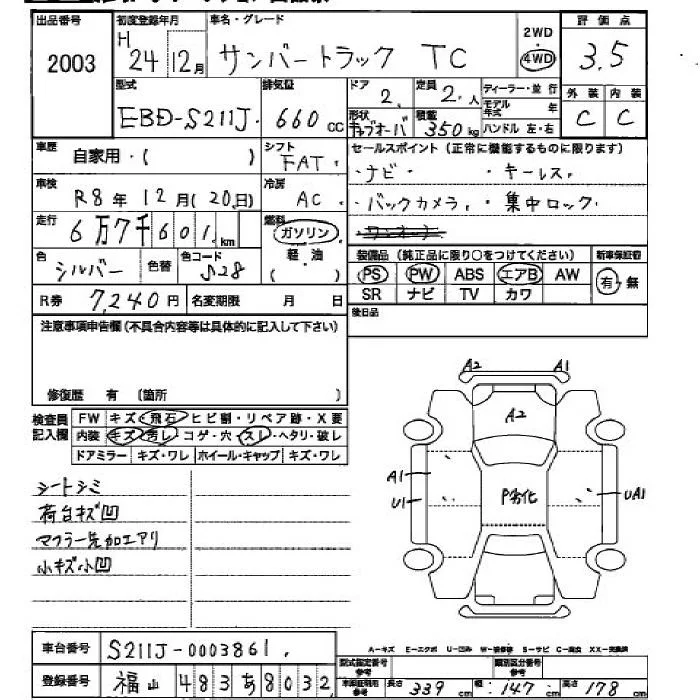 出品番号 2003
初度登録年月 H 24 12月
車名・グレード サンバートラック TC
2WD・4WD
評価点 3.5
外装 C 内装 C
型式 EBD-S211J.
排気量 660cc
ドア 2.
定員 2.人
ディーラー・並行
形状 キャブオーバ
積載 350kg
モデル年式 年
ハンドル 左・右
車歴 自家用・( )
シフト FAT.
セールスポイント(正常に機能するものに限ります)
・ナビ・ ・キーレス.
車検 R8年12月(20.日)
冷房 AC.
・バックカメラ. ・集中ロック.
走行 6万7千601.km
燃料 ガソリン 軽・油 ( )
色 シルバー 色替 色コード S28
装備品(純正品に限り○をつけてください) 新車保証書
PS PW ABS エアB AW 有・無
SR ナビ TV カワ
R券 7,240円 名変期限 月 日
後日品
注意事項申告欄(不具合内容等は具体的に記入して下さい)
修復歴 有 (箇所 )
検査員記入欄
FW キズ・飛石・ヒビ割・リペア跡・X要
内装 キズ・汚レ・コゲ・穴・スレ・ヘタリ・破レ
ドアミラー キズ・ワレ ホイール・キャップ キズ・ワレ
シートシミ
荷台キズ凹
マフラー先加工アリ
小キズ小凹
A2 A1
A2
A1
U1
P劣化
UA1
車台番号 S211J-0003861.
登録番号 福山 483あ8032
A−キズ E−エクボ U−凹み W−補修跡 S−サビ C−腐食 XX−交換済
型式指定番号 参考
類別区分番号 参考
車検証期日 参考
長さ 339cm 幅 147cm 高さ 178cm